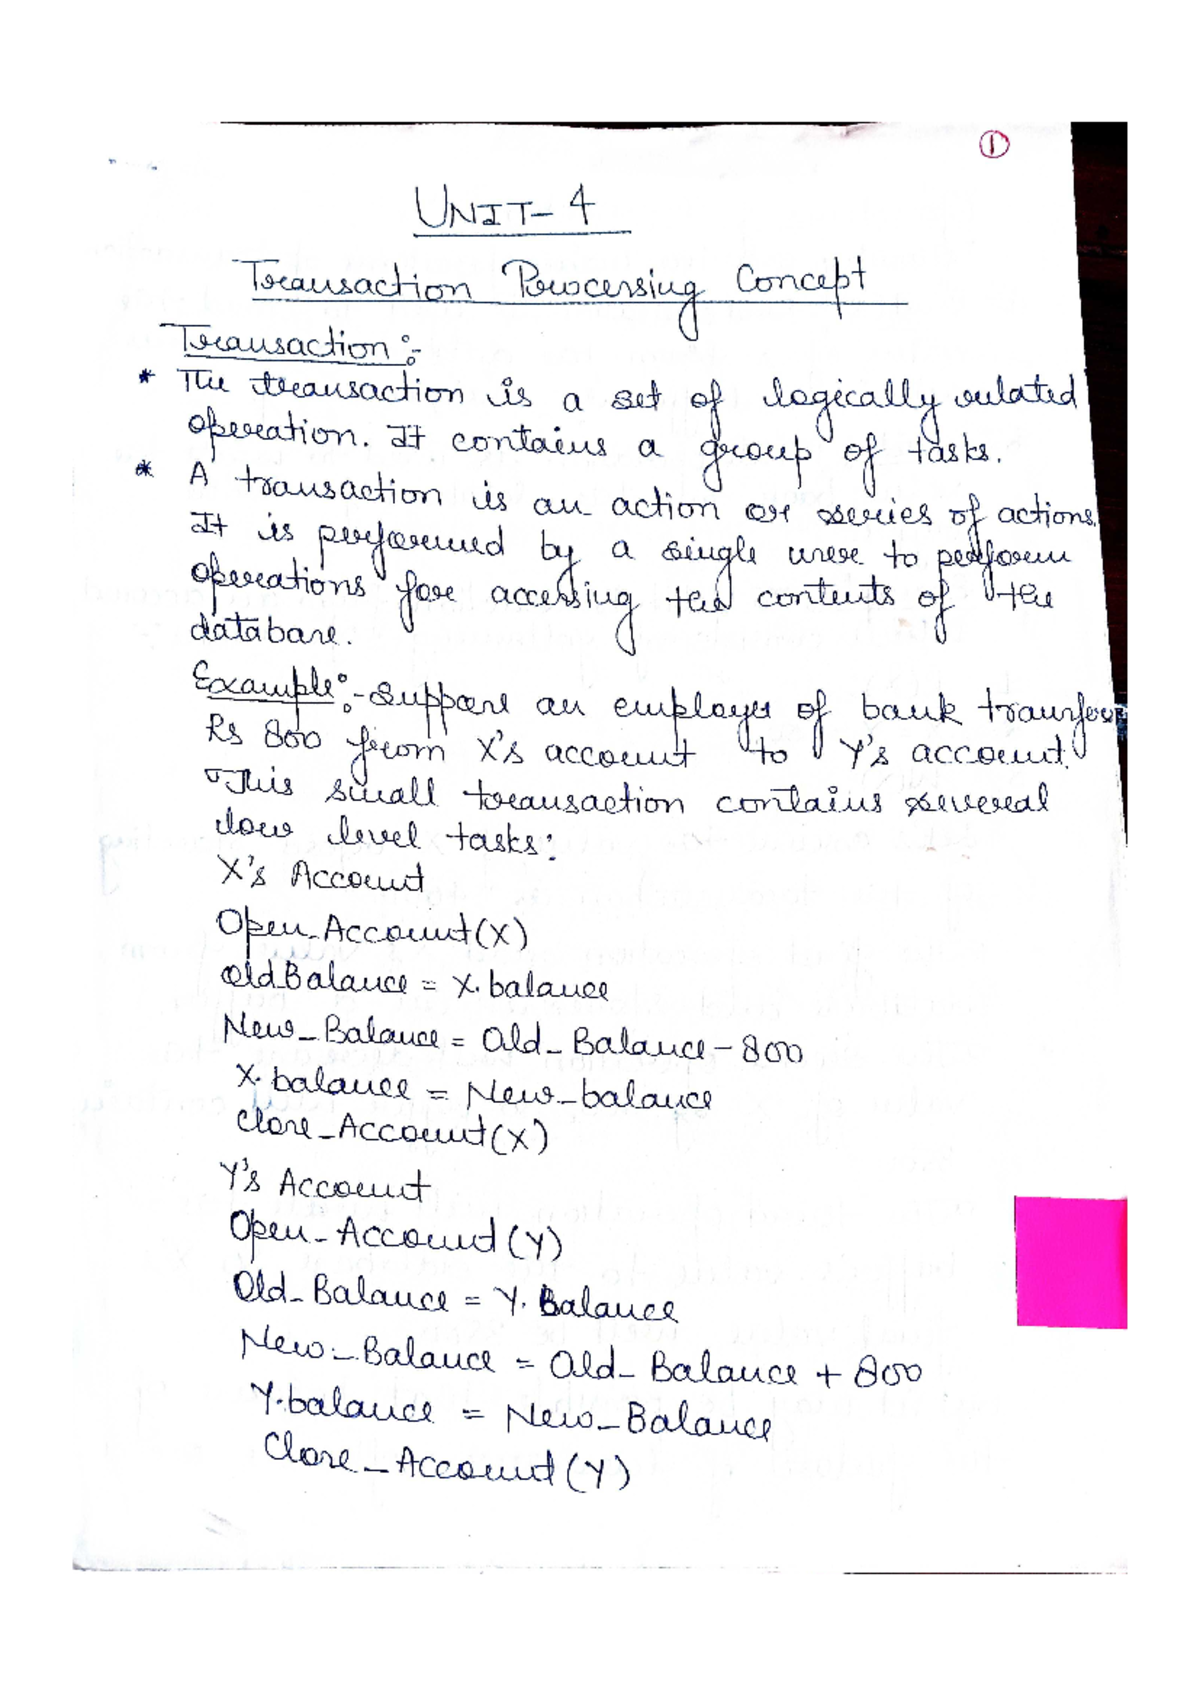 ①
UNIT-4
Transaction Processing Concept
Transaction:-
* The transaction is a set of logically related
operation. It contains a group of tasks.
* A transaction is an action or series of actions.
It is performed by a single user to perform
operations for accessing the contents of the
database.
Example:- Suppose an employee of bank transfer
Rs 800 from X's account to Y's account.
This small transaction contains several
low level tasks:
X's Account
Open_Account(X)
Old_Balance = X.balance
New_Balance = Old_Balance - 800
X.balance = New_balance
Close_Account(X)
Y's Account
Open_Account(Y)
Old_Balance = Y.Balance
New_Balance = Old_Balance + 800
Y.balance = New_Balance
Close_Account(Y)